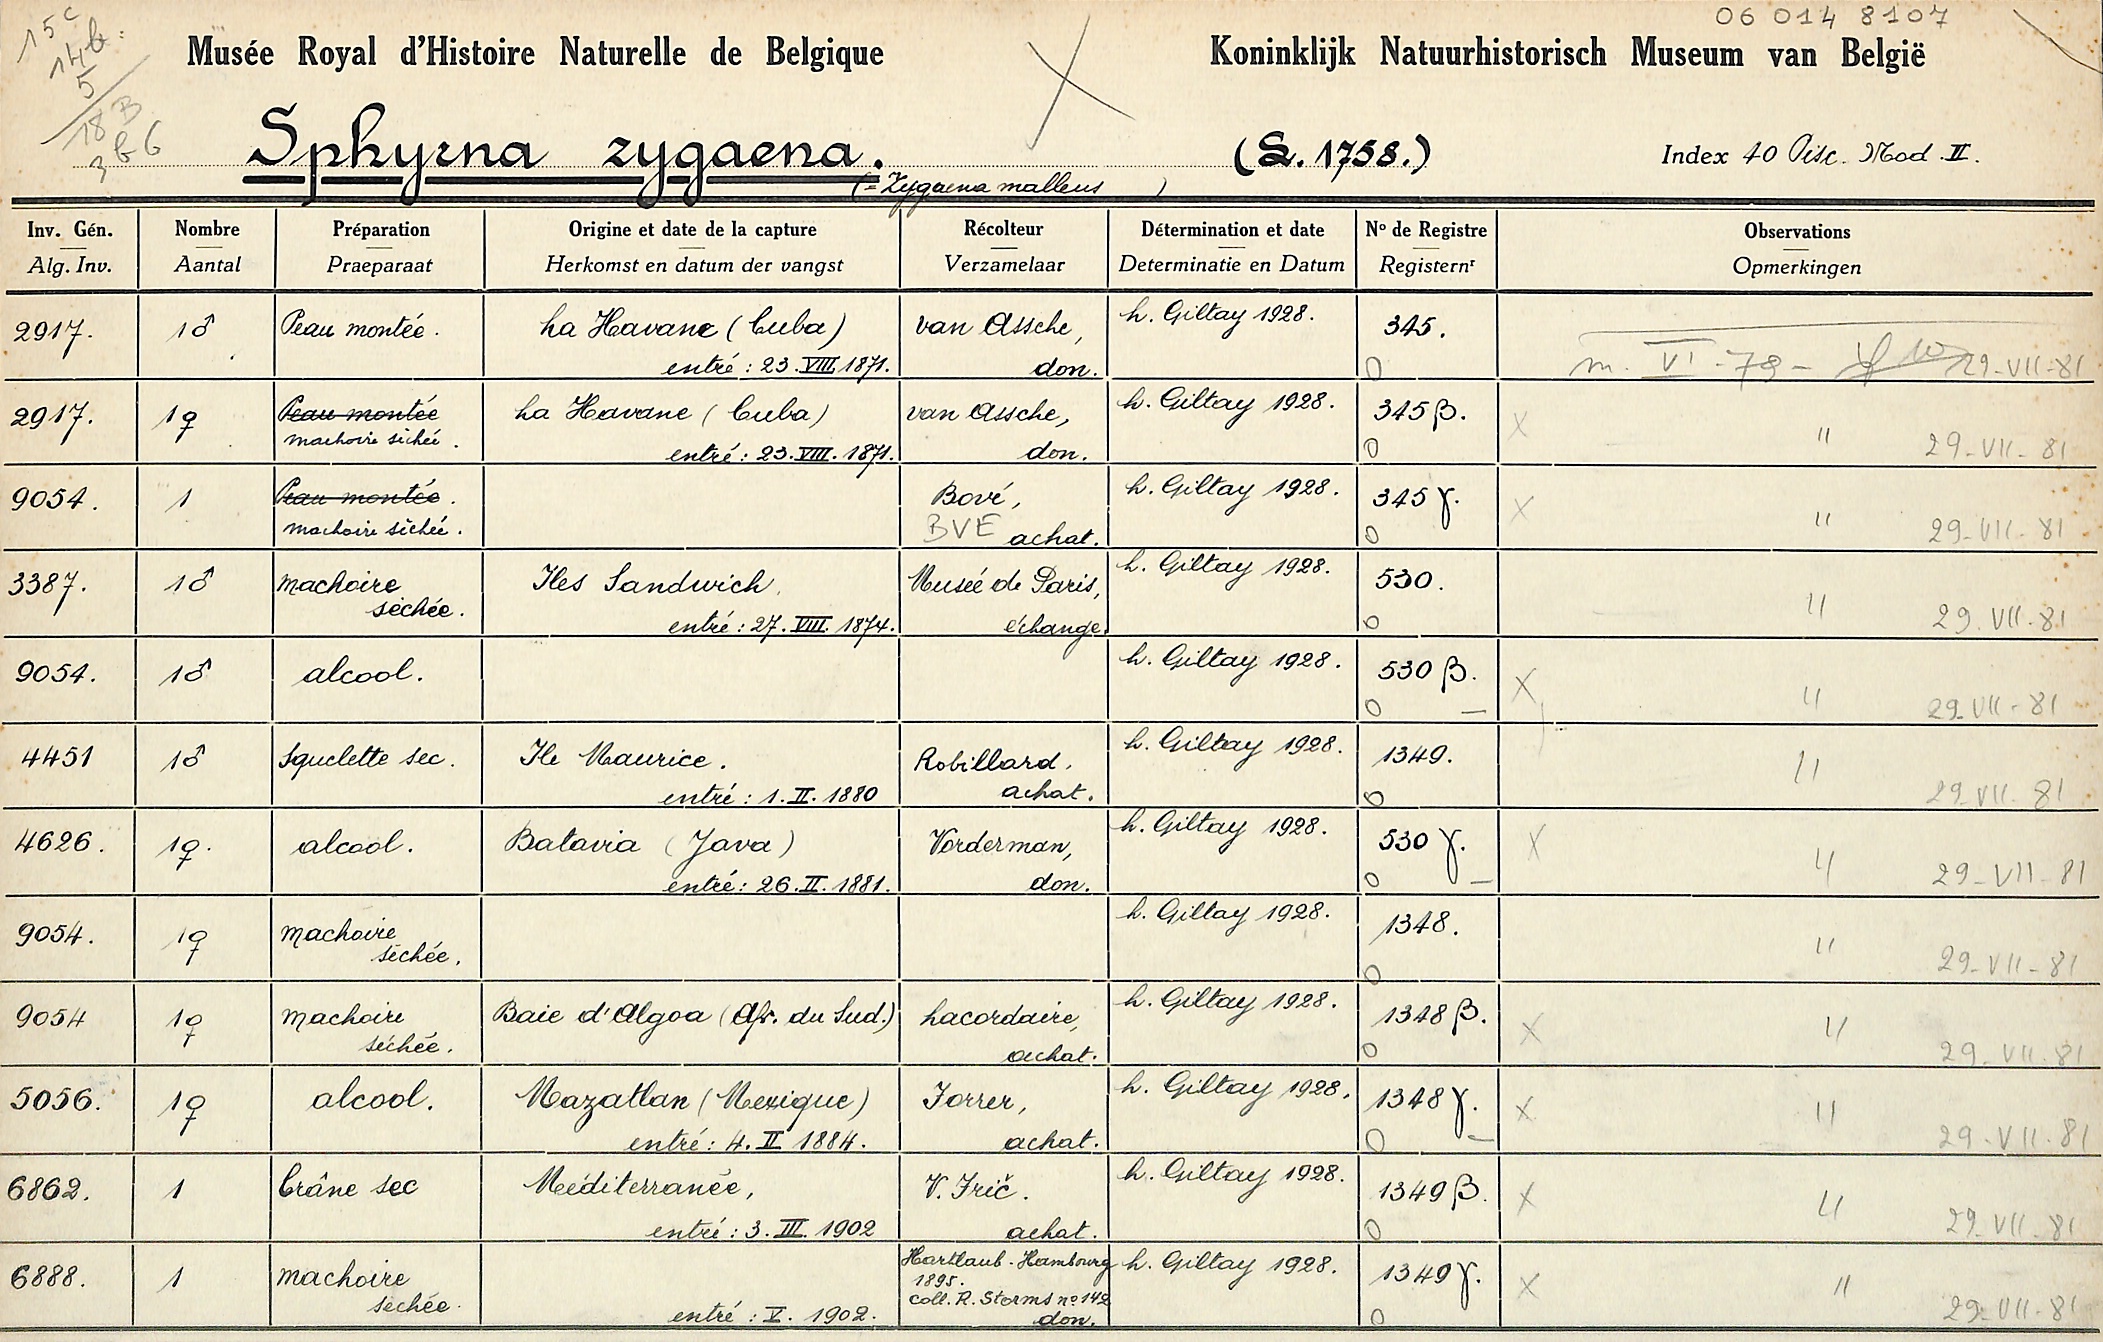 06 014 8107
15c
14b.
5
18 B
3 b 6
Musée Royal d'Histoire Naturelle de Belgique
Koninklijk Natuurhistorisch Museum van België
Sphyrna zygaena.
(L. 1758.)
Index 40 Pisc. Mod. II.
(= Zygaena malleus )
Inv. Gén. Nombre Préparation Origine et date de la capture Récolteur Détermination et date No de Registre Observations
Alg. Inv. Aantal Praeparaat Herkomst en datum der vangst Verzamelaar Determinatie en Datum Registernr Opmerkingen
2917. 1♂ Peau montée. La Havane (Cuba) van Assche, L. Giltay 1928. 345.
entré : 23.VIII.1871. don. 0 m. VI-79- 29-VII-81
2917. 1♀ Peau montée La Havane (Cuba) van Assche, L. Giltay 1928. 345 β. X
machoire séchée. entré : 23.VIII.1871. don. 0 " 29-VII-81
9054. 1 Peau montée. Bové, L. Giltay 1928. 345 γ. X
machoire séchée. BVE achat. 0 " 29-VII-81
3387. 1♂ machoire Iles Sandwich. Musée de Paris, L. Giltay 1928. 530.
séchée. entré : 27.VIII.1874. échange. 0 " 29.VII.81
9054. 1♂ alcool. L. Giltay 1928. 530 β. X
0 — " 29-VII-81
4451 1♂ Squelette sec. Ile Maurice. Robillard, L. Giltay 1928. 1349.
entré : 1.II.1880 achat. 0 " 29-VII-81
4626. 1♀. alcool. Batavia (Java) Vorderman, L. Giltay 1928. 530 γ. X
entré : 26.II.1881. don. 0 — " 29-VII-81
9054. 1♀ machoire L. Giltay 1928. 1348.
séchée. 0 " 29-VII-81
9054 1♀ machoire Baie d'Algoa (Afr. du Sud.) Lacordaire, L. Giltay 1928. 1348 β. X
séchée. achat. 0 " 29-VII-81
5056. 1♀ alcool. Mazatlan (Mexique) Forrer, L. Giltay 1928. 1348 γ. X
entré : 4.II 1884. achat. 0 — " 29-VII-81
6862. 1 Crâne sec Méditerranée, V. Frič. L. Giltay 1928. 1349 β. X
entré : 3.III.1902 achat. 0 " 29-VII-81
6888. 1 machoire Hartlaub-Hambourg L. Giltay 1928. 1349 γ. X
1895.
séchée. coll. R. Storms no 142
entré : V. 1902. don. 0 " 29-VII-81